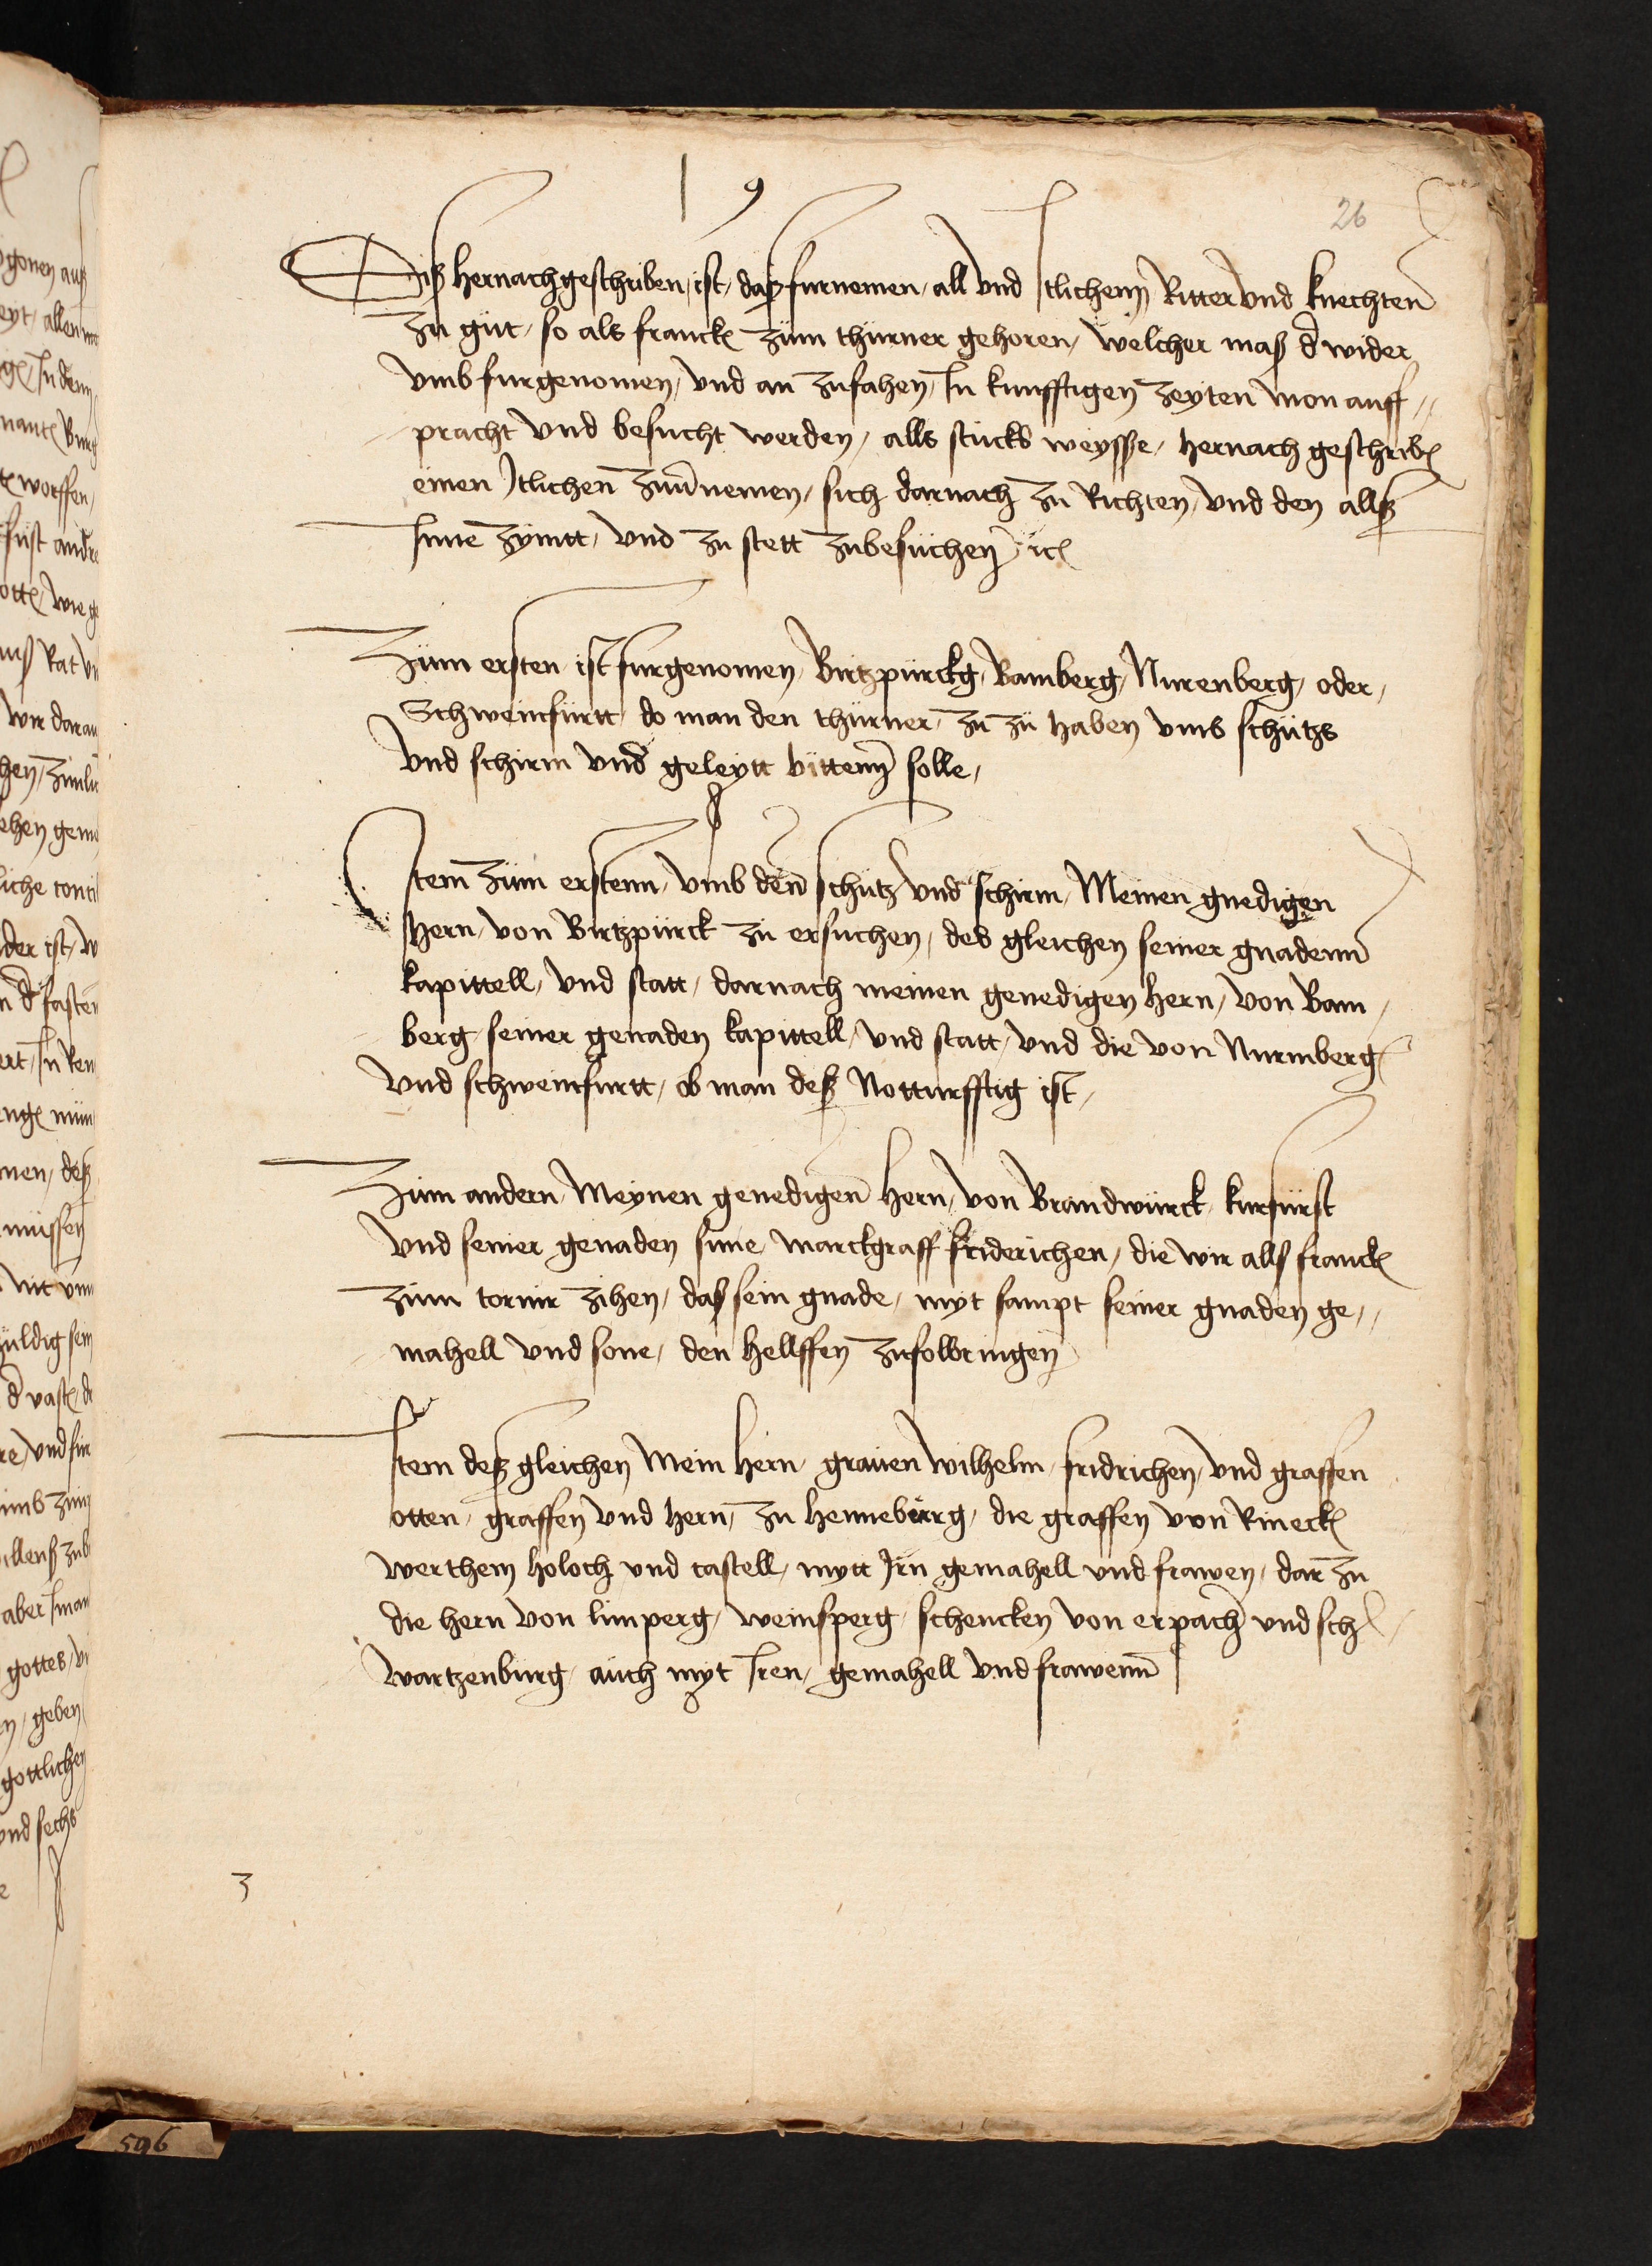 26
Diß hernachgeschriben, ist, daß furnemen, all und Itlichenn Ritter und knechten
zu gut, so als franckn zum thurner gehoren, welcher maß der wider
umb furgenomen, und an zufahen, In kunfftigen zeyten auff
pracht und besucht werden, alls stucks weysse, hernach geschribn
einen Itlichen nemen, sich darnach zu Richten, und den allß
Inne zymtt, und zu stett zubesuchen
Zum ersten ist furgenomen, Birtzpurckg, Bamberg, Nurenberg, oder,
Schweinfurtt, do man den thurner, zu zu haben umb schutzs
und schirm und geleytt bittenn solle,
Item zum erstenn, umb den schutz und schirm, Meinen gnedigen
hern, von Birtzpurck zu ersuchen, des gleichen seiner gnadenn
kapittell, und statt, darnach meinen genedigen hern, von Bam,
berg, seiner genaden kapittell, und statt, und die von Nurmberg
und schweinfurtt, ob man deß Notturfftig ist,
Zum andern, Meynen genedigen hern, von Brandwurck, kurfurst
und seiner genaden sune, marckgraff friderichen, die wir alls franckn
zum tornir zihen, das sein gnade, myt sampt seiner gnaden ge,,
mahell und sone, den hellffen zufolbringen
Item deß gleichen Mein hern, grauen Wilhelm, fridrichen, und graffen
otten, graffen und hern, zu henneburg, die graffen von Rineckn
werthem holoch und castell, mytt Irn gemahell und frawen, dar zu
die hern von limperg, weinsperg, schencken von erpach und sch
wartzenburg, auch myt Iren, gemahell und frawenn
3
596